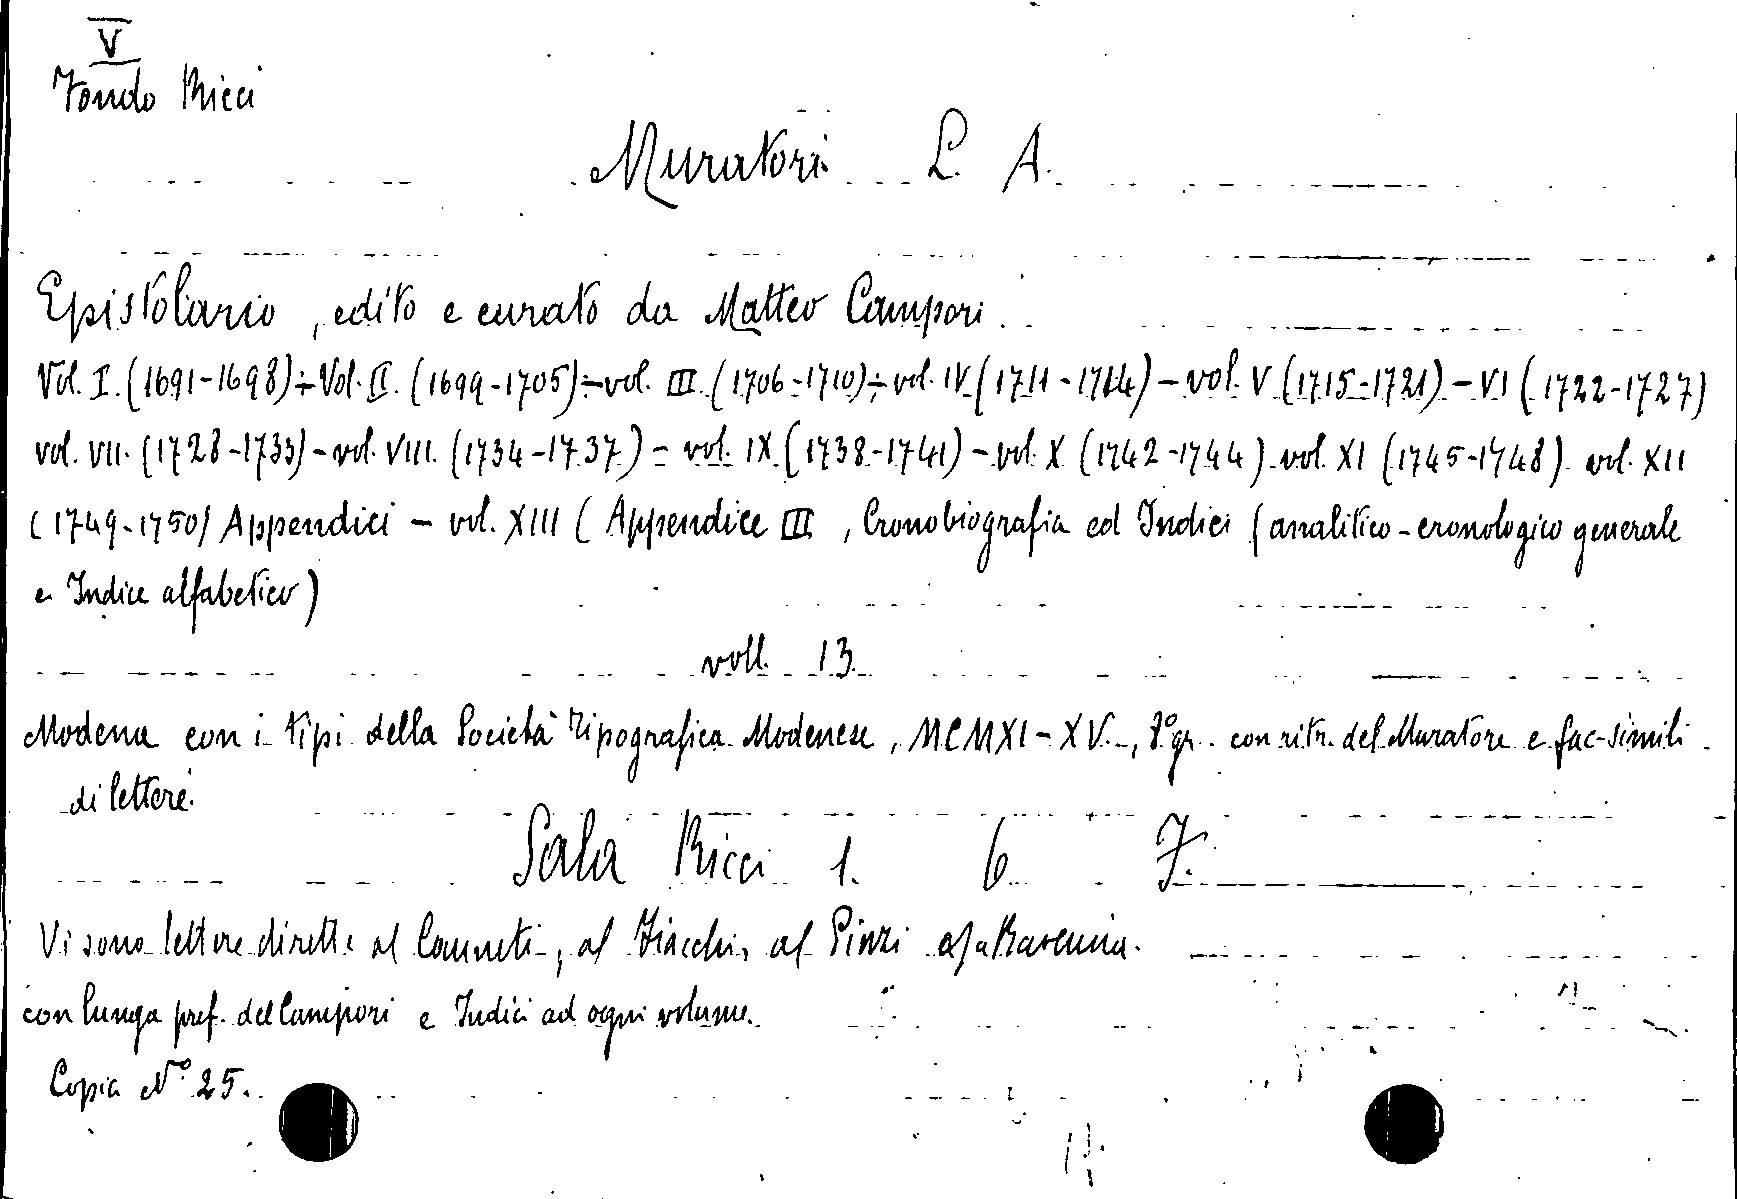 V
Fondo Ricci
Muratori L. A.
Epistolario, edito e curato da Matteo Campori.
Vol. I. (1691-1698) - Vol. II. (1699-1705) - vol. III. (1706-1710) - vol. IV (1711-1714) - vol. V (1715-1721) - VI (1722-1727)
vol. VII. (1728-1733) - vol. VIII. (1734-1737) - vol. IX (1738-1741) - vol. X (1742-1744) vol. XI (1745-1748) vol. XII
(1749-1750) Appendici - vol. XIII (Appendice III, Cronobiografia ed Indici (analitico-cronologico generale
e Indice alfabetico)
voll. 13.
Modena con i tipi della Società Tipografica Modenese, MCMXI-XV., 8° gr. con ritr. del Muratore e fac-simili
di lettere.
Sala Ricci 1. 6 F.
Vi sono lettere dirette al Canneti, al Fiacchi, al Pinzi Ravenna.
con lunga pref. del Campori e Indici ad ogni volume.
Copia N° 25.